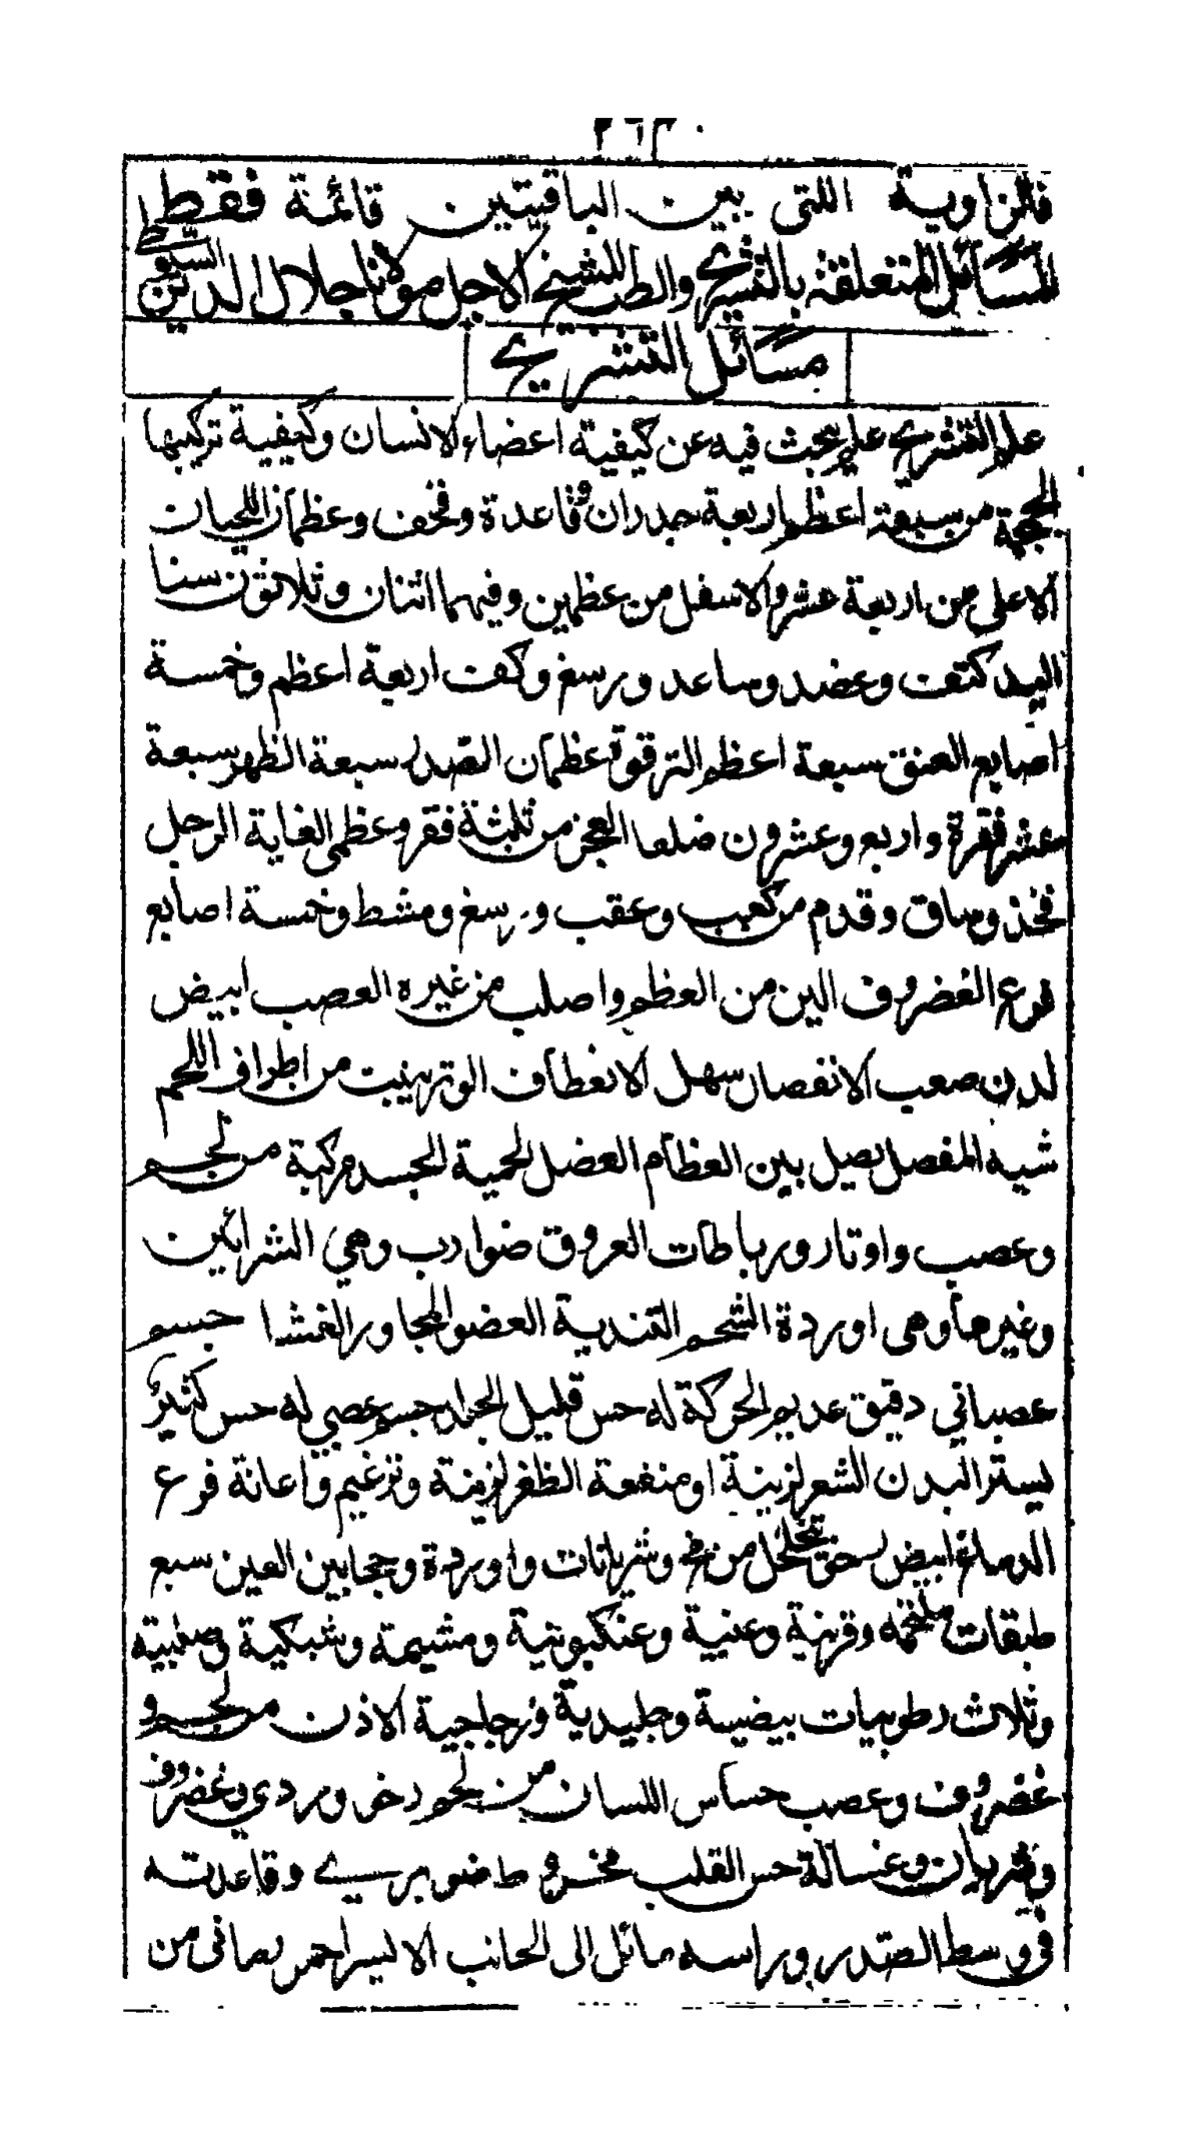 فالزاوية اللتى بين الباقيتين قائمة فقط
المسائل المتعلقة بالتشريح والطب للشيخ الاجل مولانا جلال الدين السيوطي
مسائل التشريح
علم التشريح علم يبحث فيه عن كيفية اعضاء الانسان وكيفية تركيبها
الجمجمة من سبعة اعظم اربعة جدران وقاعدة وقحف وعظمان اللحيان
الاعلى من اربعة عشر والاسفل من عظمين وفيهما اثنان وثلاثون سنا
اليد كتف وعضد وساعد ورسغ وكف اربعة اعظم وخمسة
اصابع العنق سبعة اعظم الترقوة عظمان الصدر سبعة الظهر سبعة
عشر فقرة واربع وعشرون ضلعا العجز من ثلثة فقر وعظمى الغاية الرجل
فخذ وساق وقدم من كعب وعقب ورسغ ومشط وخمسة اصابع
فرع الغضروف الين من العظم واصلب من غيره العصب ابيض
لدن صعب الانفصال سهل الانعطاف الوتر ينبت من اطراف اللحم
شبه المفصل يصل بين العظام العضل لحمية الجسد مركبة من لحم
وعصب واوتار ورباطات العروق ضوارب وهي الشرائين
وغيرها وهى اوردة الشحم التندية العضو المجاور الغشا جسم
عصباني دقيق عديم الحركة له حس قليل الجلد جسم عصبي له حس كثير
يستر البدن الشعر لزينة او منفعة الظفر لزينة وتزغيم واعانة فرع
الدماغ ابيض متخلخل من مخ وشريانات واوردة وحجابين العين سبع
طبقات ملتحمة وقرنية وعنبية وعنكبوتية ومشيمة وشبكية وصلبية
وثلاث رطوبيات بيضية وجليدية وزجاجية الاذن من لحم و
غضروف وعصب حساس اللسان من لحم رخو وردي وغضروف
وشريان وغسالة حس القلب مخروط صنوبرى وقاعدته
في وسط الصدر وراسه مائل الى الجانب الايسر احمر رمانى من